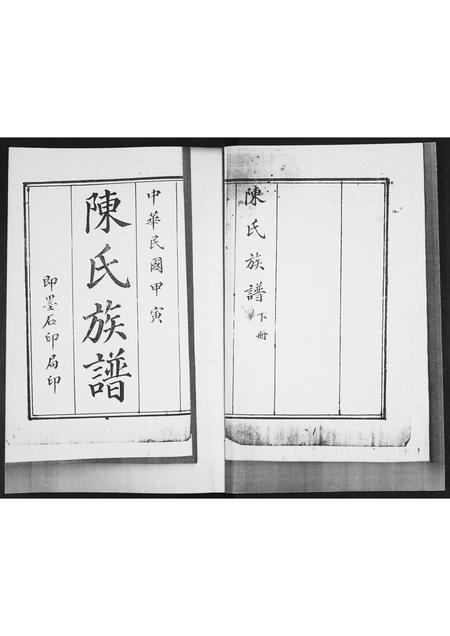 陳氏族譜下冊
中華民國甲寅
陳氏族譜
即墨石印局印